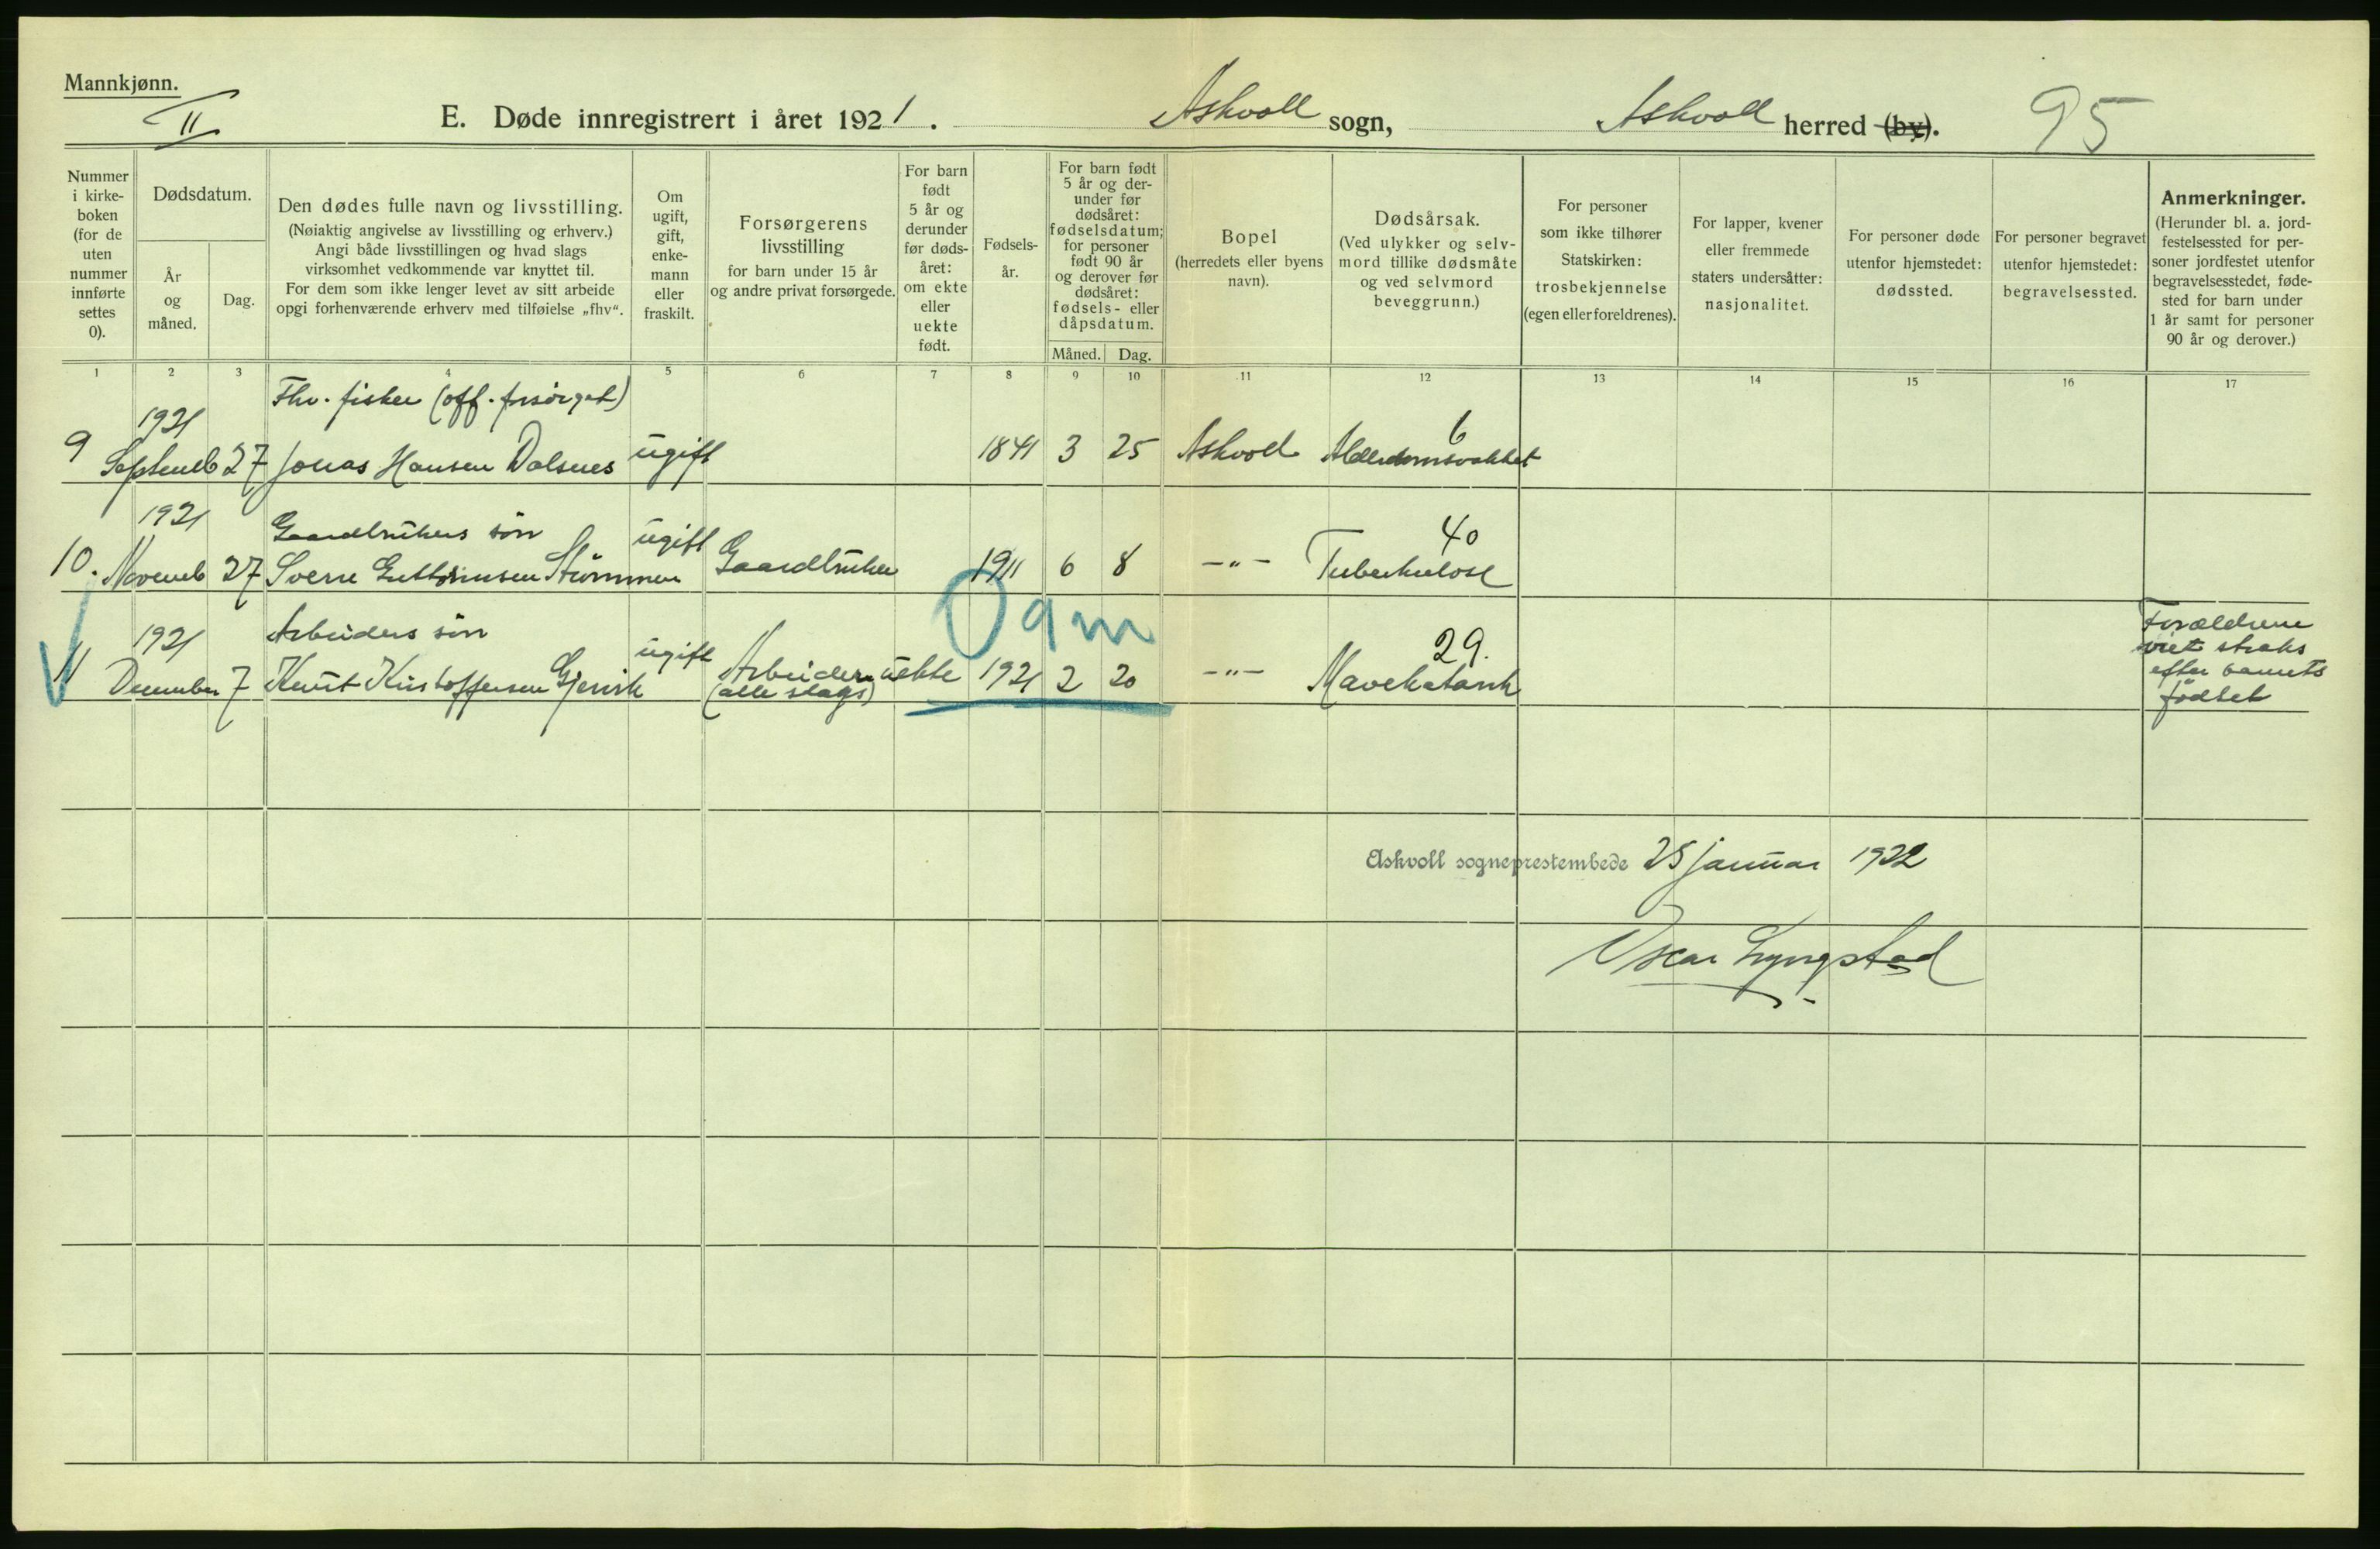 Mannkjønn.
II
E. Døde innregistrert i året 1921. Askvoll sogn, Askvoll herred (by). 95
Nummer i kirke-boken (for de uten nummer innførte settes 0).
Dødsdatum.
År og måned.
Dag.
Den dødes fulle navn og livsstilling.
(Nøiaktig angivelse av livsstilling og erhverv.)
Angi både livsstillingen og hvad slags
virksomhet vedkommende var knyttet til.
For dem som ikke lenger levet av sitt arbeide
opgi forhenværende erhverv med tilføielse „fhv“.
Om ugift, gift, enke-mann eller fraskilt.
Forsørgerens
livsstilling
for barn under 15 år
og andre privat forsørgede.
For barn født 5 år og derunder før døds-året: om ekte eller uekte født.
Fødsels-år.
For barn født 5 år og der-under før dødsåret: fødselsdatum; for personer født 90 år og derover før dødsåret: fødsels- eller dåpsdatum.
Måned. Dag.
Bopel
(herredets eller byens
navn).
Dødsårsak.
(Ved ulykker og selv-
mord tillike dødsmåte
og ved selvmord
beveggrunn.)
For personer
som ikke tilhører
Statskirken:
trosbekjennelse
(egen eller foreldrenes).
For lapper, kvener
eller fremmede
staters undersåtter:
nasjonalitet.
For personer døde
utenfor hjemstedet:
dødssted.
For personer begravet
utenfor hjemstedet:
begravelsessted.
Anmerkninger.
(Herunder bl. a. jord-
festelsessted for per-
soner jordfestet utenfor
begravelsesstedet, føde-
sted for barn under
1 år samt for personer
90 år og derover.)
1 2 3 4 5 6 7 8 9 10 11 12 13 14 15 16 17
Fhv. fisker (off. forsørget)
1921 6
9 Septemb 27 Jonas Hansen Dalsnes ugift 1841 3 25 Askvoll Alderdomsvakhet
1921 Gaardbrukers søn ugift 40
10. Novemb 27 Sverre Guttormsen Strømmen Gaardbruker 1911 6 8 -"- Tuberkulose
0 9 m
1921 Arbeiders søn ugift 29.
11 December 7 Knut Kristoffersen Gjervik Arbeider uekte 1921 2 20 -"- Mavekatarrh
(alle slags)
Forældrene
viet straks
efter barnets
fødsel
Askvoll sogneprestembede 25 januar 1922
Oscar Lyngstad